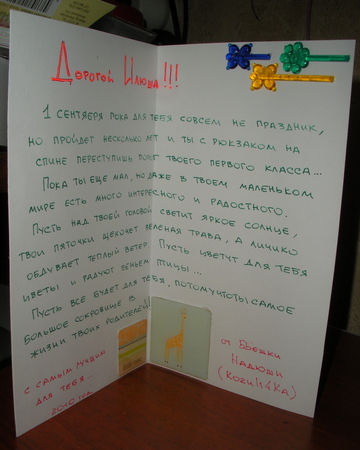 Дорогой Илюша!!!
1 сентября пока для тебя совсем не праздник,
но пройдет несколько лет и ты с рюкзаком на
спине переступишь порог твоего первого класса...
Пока ты еще мал, но даже в твоем маленьком
мире есть много интересного и радостного.
Пусть над твоей головой светит яркое солнце,
твои пяточки щекочет зеленая трава, а личико
обдувает теплый ветер. Пусть цветут для тебя
цветы и радуют пеньем птицы...
Пусть все будет для тебя, потому что ты самое
большое сокровище в
жизни твоих родителей!
С самым лучшим
для тебя...
2010 год
от
Надюши